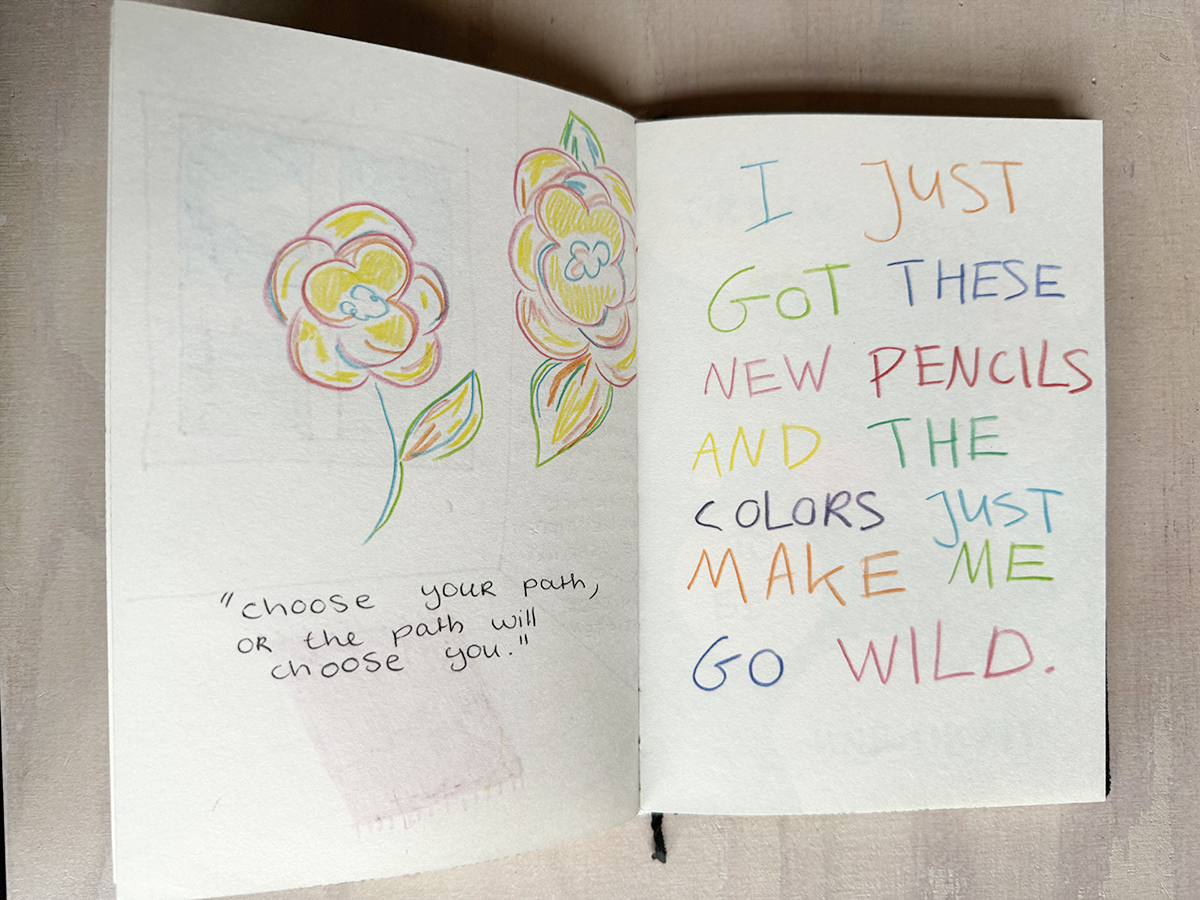 "choose your path,
or the path will
choose you."
I JUST
GOT THESE
NEW PENCILS
AND THE
COLORS JUST
MAKE ME
GO WILD.